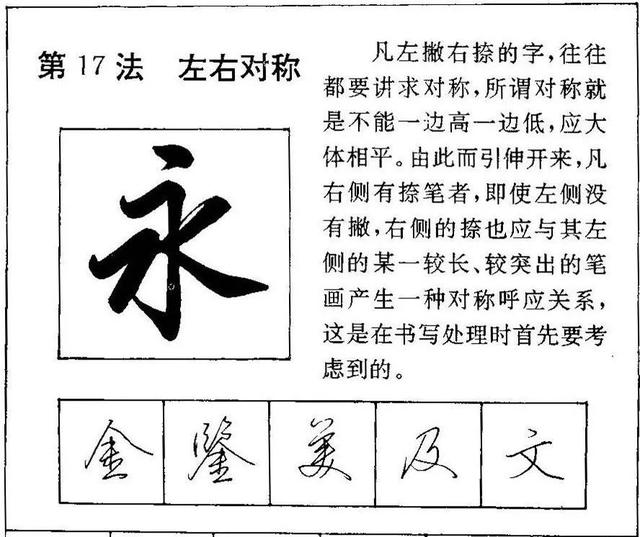 第17法 左右对称
凡左撇右捺的字,往往
都要讲求对称,所谓对称就
是不能一边高一边低,应大
体相平。由此而引伸开来,凡
右侧有捺笔者,即使左侧没
有撇,右侧的捺也应与其左
侧的某一较长、较突出的笔
画产生一种对称呼应关系,
这是在书写处理时首先要考
虑到的。
永
金 鉴 美 及 文